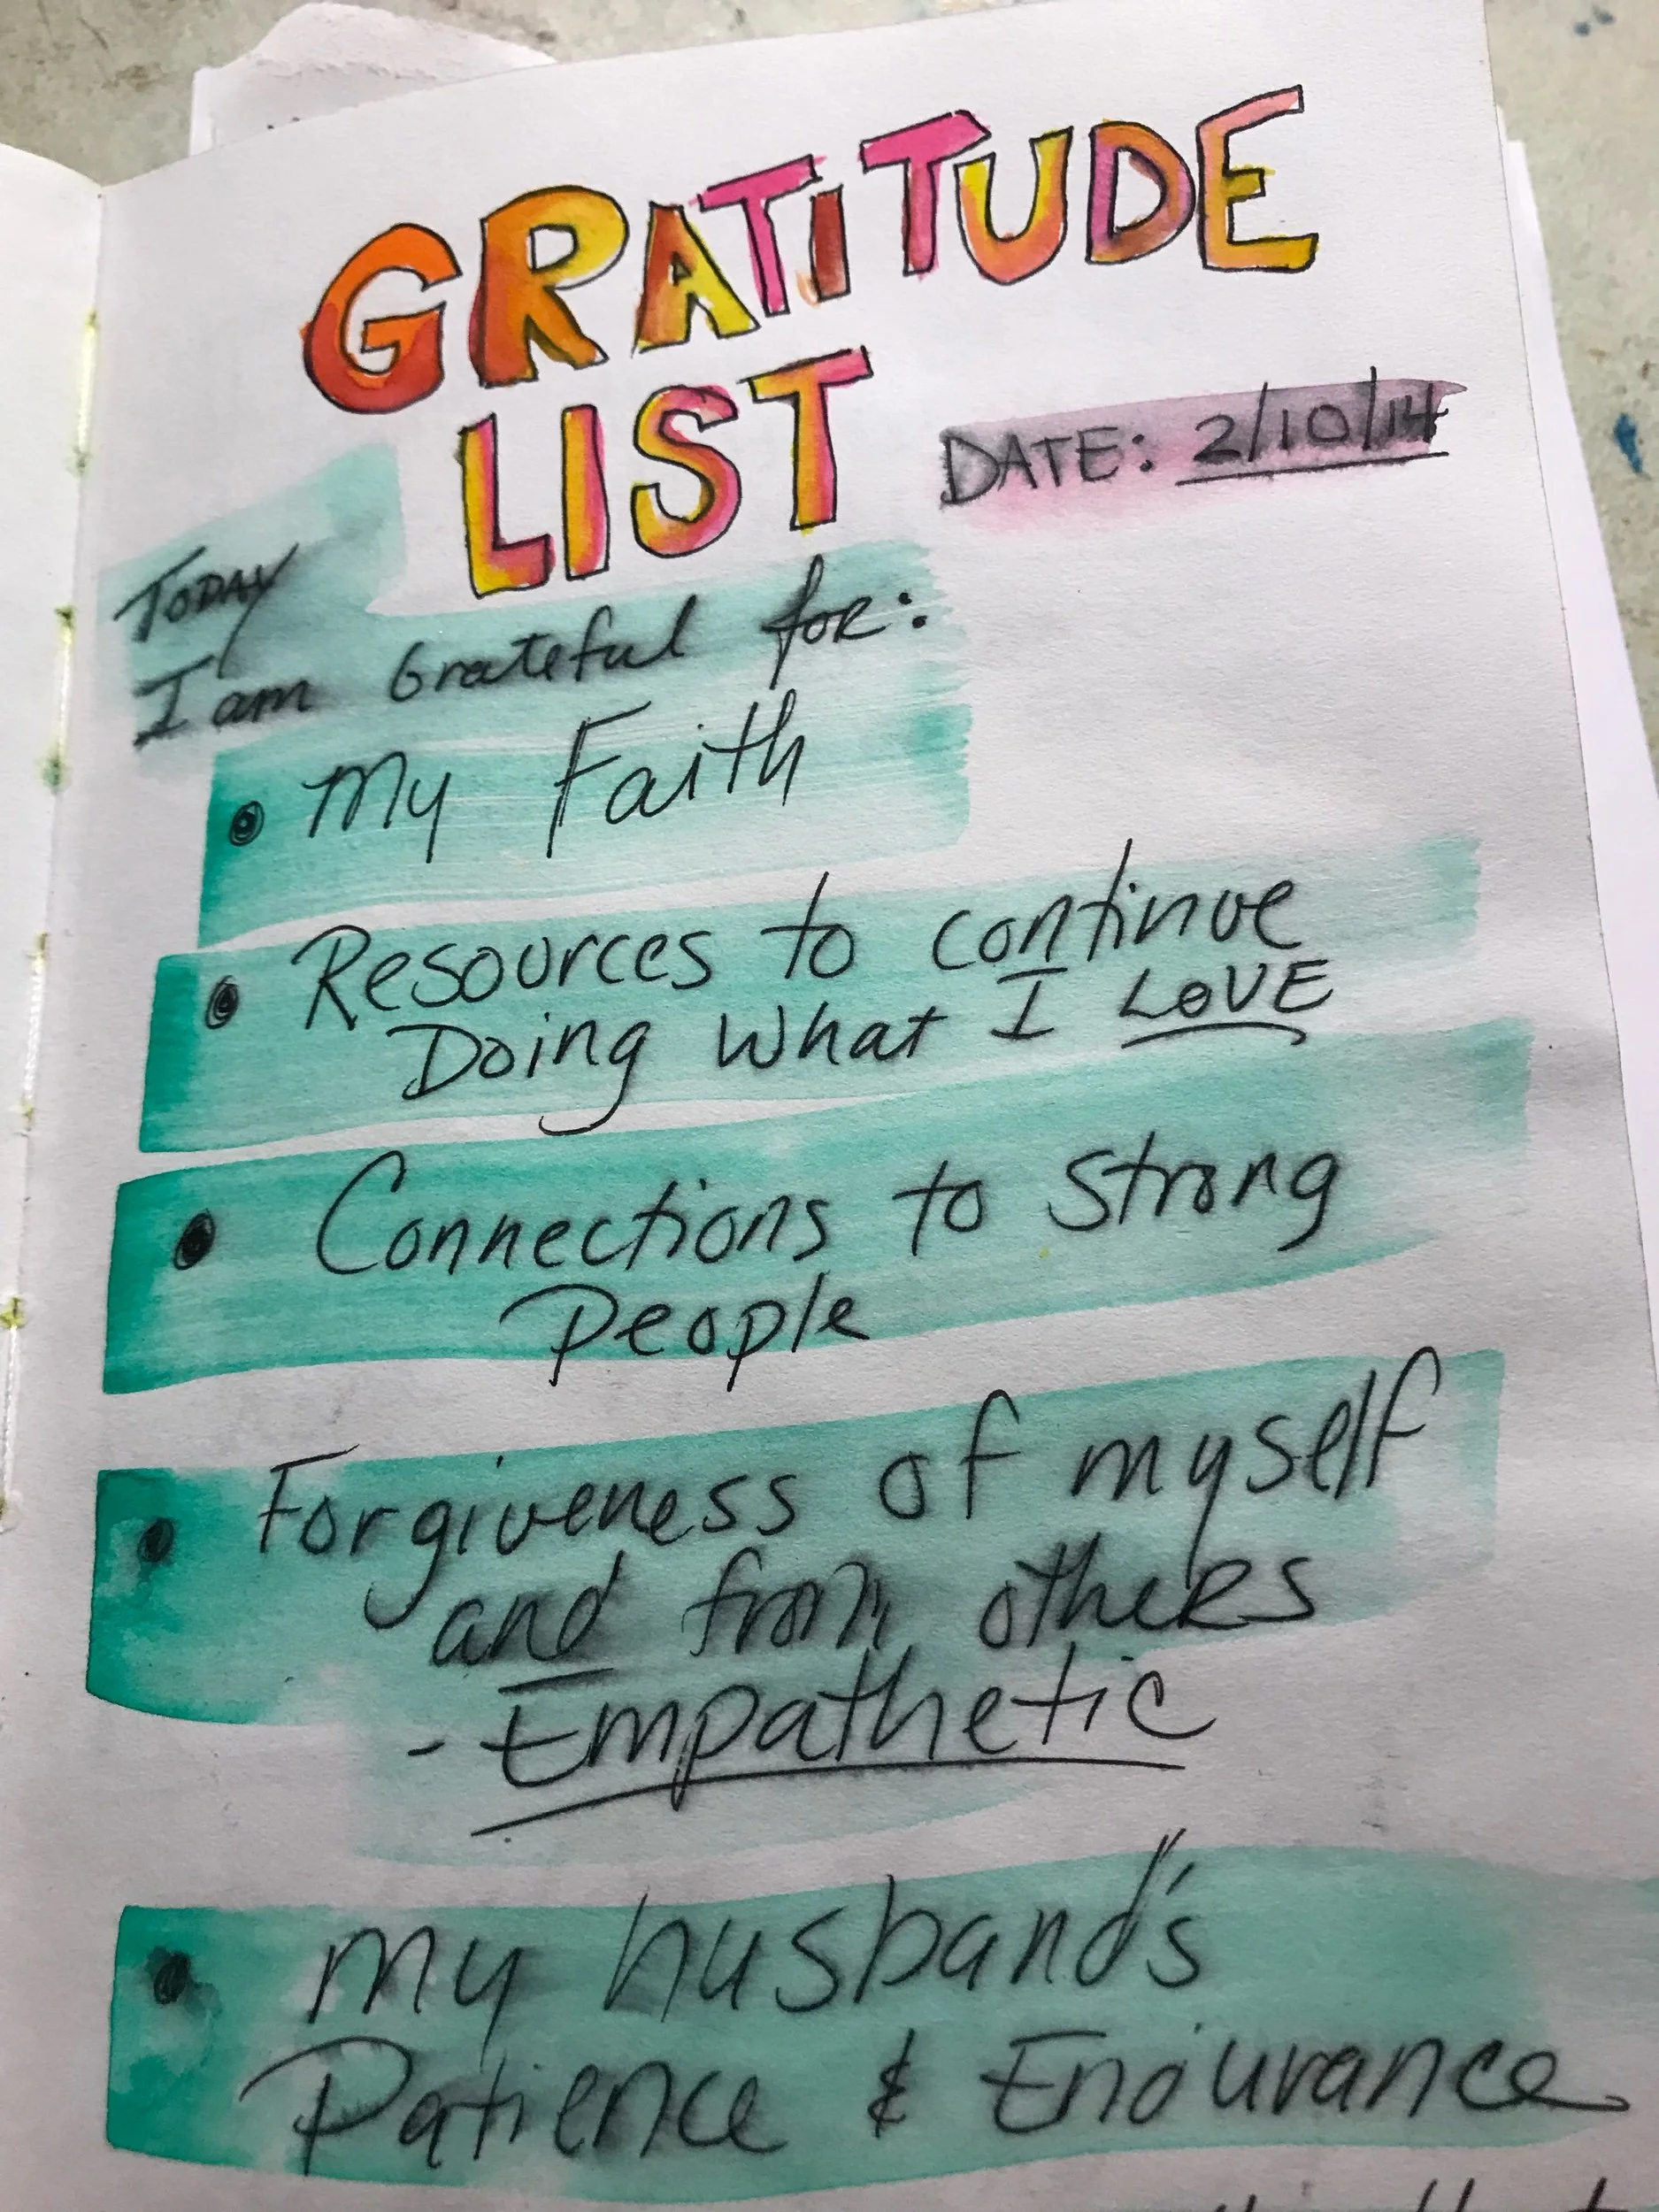 GRATITUDE
LIST
DATE: 2/10/14
TODAY
I am Grateful for:
• My Faith
• Resources to continue
Doing What I LOVE
• Connections to Strong
People
• Forgiveness of myself
and from others
- Empathetic
• my husband's
Patience & Endurance